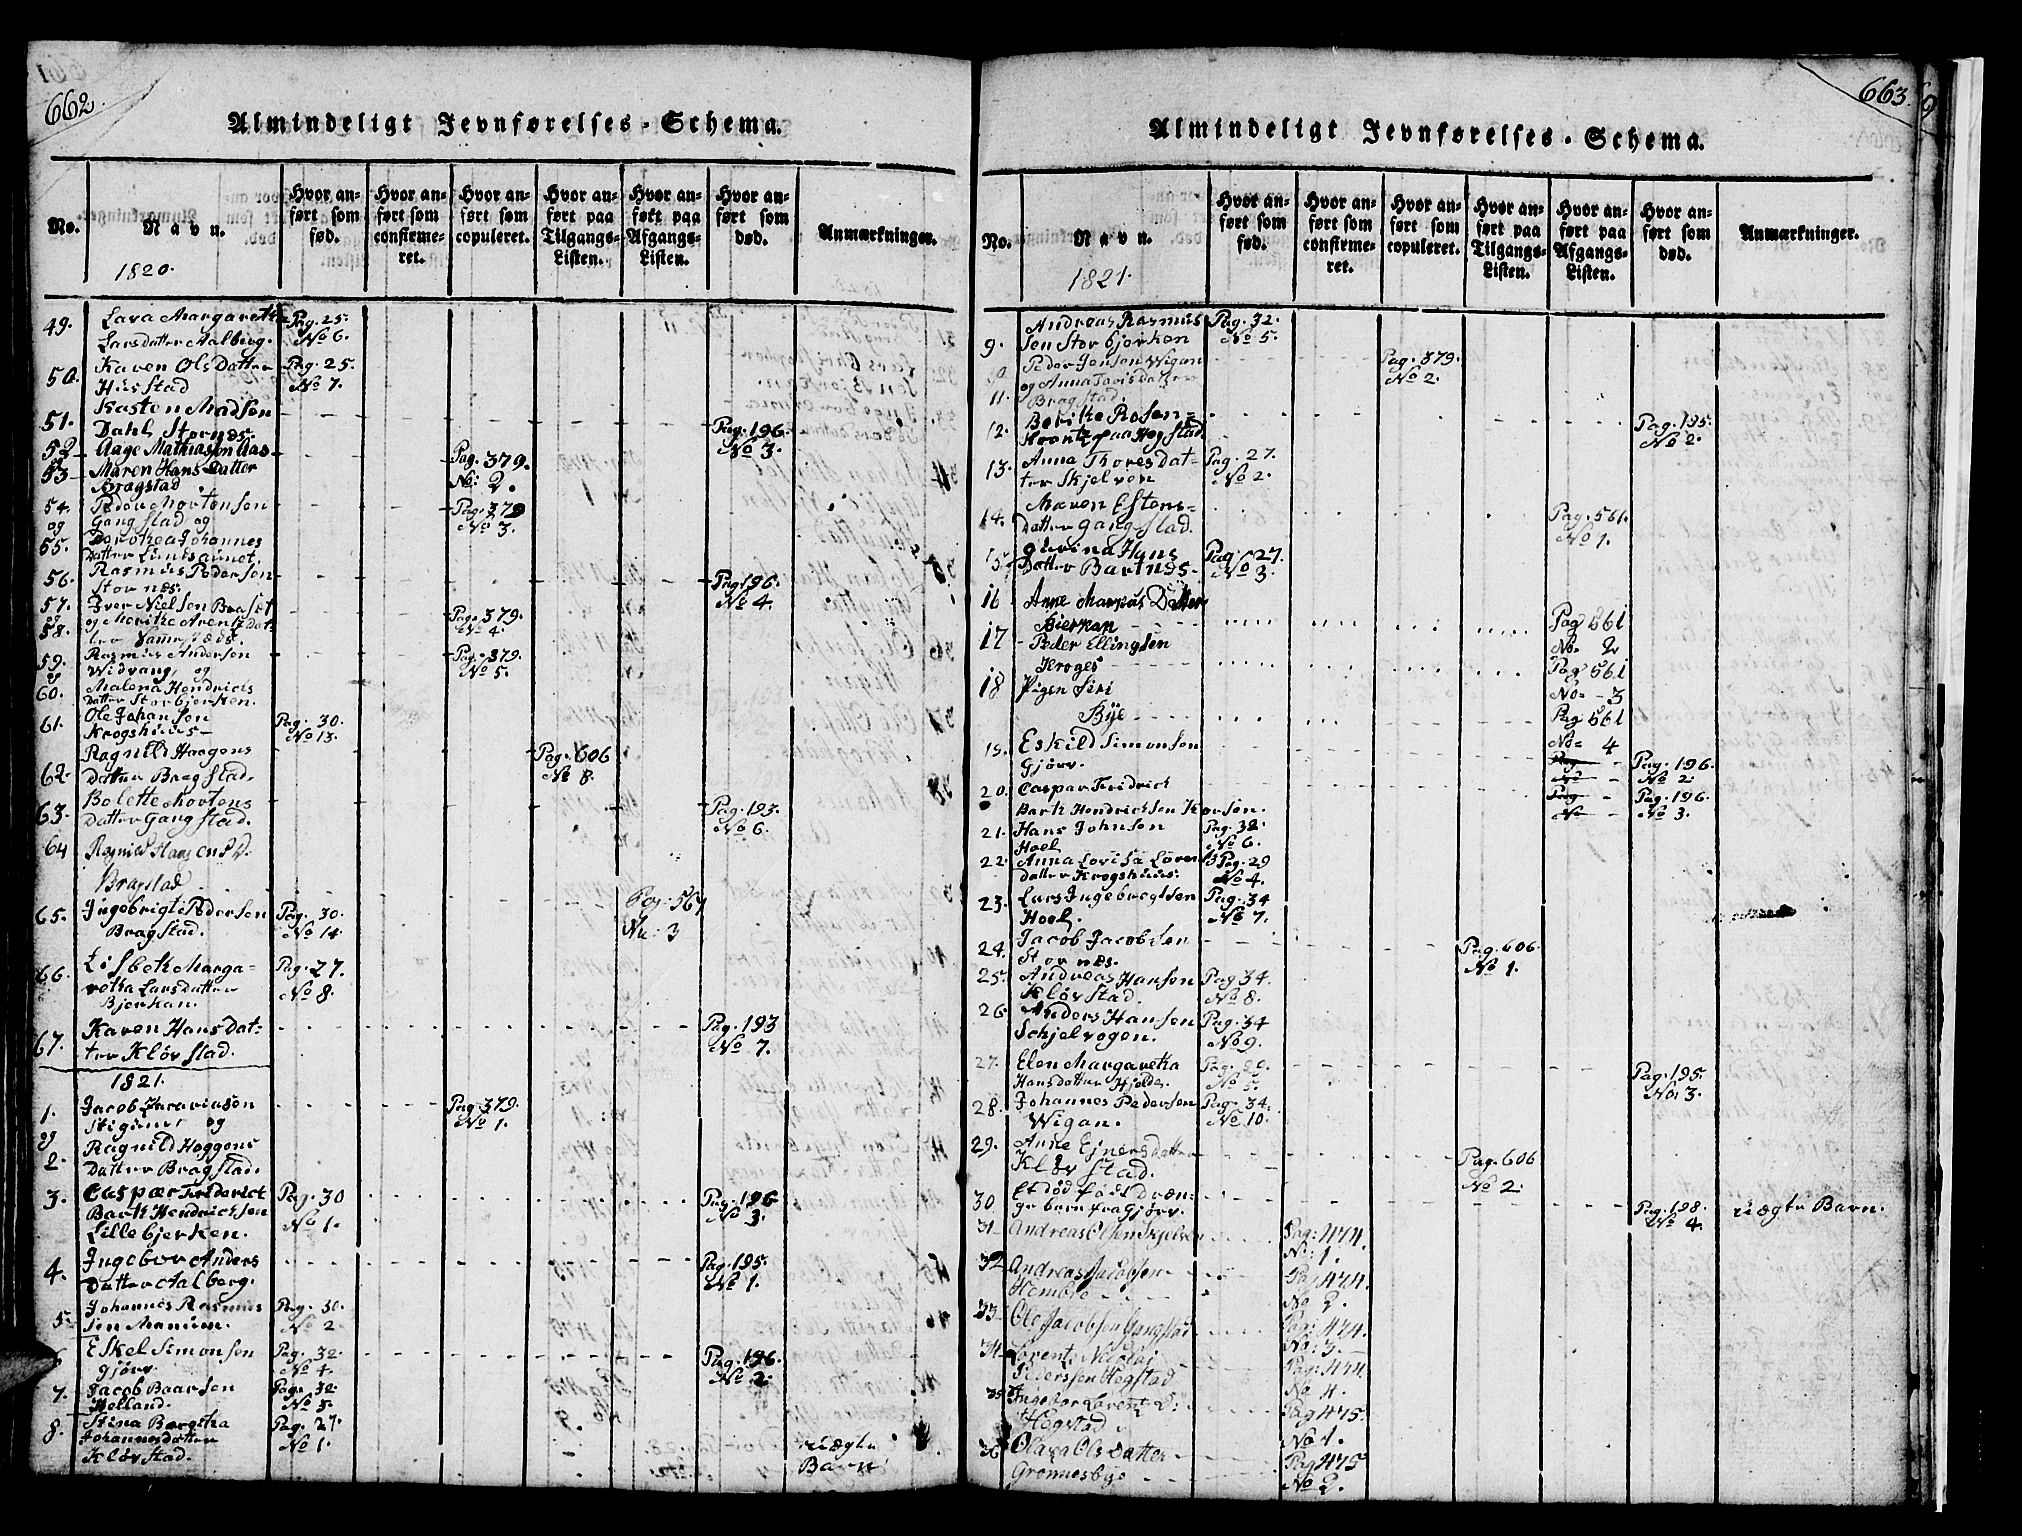 662
Almindeligt Jevnførelses-Schema.
No.
Navn.
1820.
Hvor anført som fød.
Hvor anført som confirmeret.
Hvor anført som copuleret.
Hvor anført paa Tilgangs-Listen.
Hvor anført paa Afgangs-Listen.
Hvor anført som død.
Anmærkninger.
49. Lava Margaretha Pag. 25.
Larsdatter Aalberg. No 6.
50. Karen OlsDatter Pag. 25.
Husstad No 7.
51. Kasten Madsen
Dahl Stornæs. Pag. 196. No 3.
52 Aage Mathiason Aas-
og
53 Maren Hans Datter Pag. 379.
Bragstad No: 2.
54. Peder Mortensen Pag. 379
og Gangstad og No 3.
55. Dorothea Johannes
Datter
56. Rasmus Pedersen Pag. 196.
Stornæs. No 4.
57. Iver Nielsen
og
58. og Merithe Arentzdat- Pag. 379
ter No 4.
59. Rasmus Andersen Pag. 379.
og Widvang, og No 5.
60. Malena Hendrichs
Datter Storbjerken.
61. Ole Johansen Pag. 30.
Krogshuus No 13.
Ragnild Haagens Pag. 606
62. Datter Bragstad. No 8.
63. Bolette Mortens Pag. 193.
Datter Gangstad. No 6.
64 Ragnild Haagens D.
Bragstad Pag: 561
No: 3
65. Ingebrigt Pedersen Pag. 30.
Bragstad. No 14.
66. Lisbeth Marga- Pag. 27.
retha Larsdatter No 8.
Bjerkan.
67. Karen Hansdat- Pag. 193
ter Kløvstad. No 7.
1821.
1. Jacob Zarariason Pag. 379.
og No 1.
2. Ragnild Hoggens
Datter Bragstad.
3. Caspær Friderick Pag. 30 Pag. 196
Barth Hendrichsen No 1. No 3.
Lillebjerken.
4. Ingebor Anders Pag. 195.
Datter Aalberg. No 1.
5. Johannis Rasmus Pag. 30.
sen Manum. No 2
6 Eskel Simonsen Pag. 32. Pag. 196.
Gjørv. No 4. No 2.
7. Jacob Baarsen Pag. 32.
Helland. No 5.
8. Stina Beretha Pag. 27.
Johannesdatter No 1.
Kløvstad. uægte Barn
663.
Almindeligt Jevnførelses-Schema.
No.
Navn.
1821.
Hvor anført som fød.
Hvor anført som confirmeret.
Hvor anført som copuleret.
Hvor anført paa Tilgangs-Listen.
Hvor anført paa Afgangs-Listen.
Hvor anført som død.
Anmærkninger.
9. Andreas Rasmus Pag. 32.
sen Storbjerken No 5.
10 Peder Jensen Wigan Pag. 379.
og Anna Datter No 2.
11. Bragstad.
12. Berithe Rosen= Pag. 195
paa Hogstad No 2.
13. Anna Thoresdat- Pag. 27.
ter Skjelven No 2.
14. Maren Estens- Pag. 561.
Datter Gangstad. No 1.
15. Hans Pag. 27.
Datter Bartnes No 3.
16 Anne Marcus Datter
Bierkan Pag 561
No= 2
17 Peder Ellingsen
Kroges Pag 561
No= 3
18 Pigen Seri
Bye Pag 561
No= 4
19. Eskild Simonsen Pag. 196.
Gjørv. No 2.
20. Caspar Fridrick Pag. 196.
Barth Hendrichsen No 3.
21. Hans Johnsen Pag. 32.
Hoel No 6.
22. Anna Lovisa Pag. 29
datter Krogshuus: No 4.
23. Lars Ingebregtsen Pag. 34
Hoel. No 7.
24. Jacob Jacobsen Pag. 606.
Stornæs. No 1.
25. Andreas Hansen Pag. 34.
Kløvstad. No 8.
26. Anders Hansen Pag. 34
Schjelvogen. No 9.
27. Elen Margaretha Pag. 29. Pag. 195.
Hansdatter Hjelde. No 5. No. 3.
28. Johannes Pedersen Pag. 34.
Wigan. No 10.
29. Anne Ejnersdatter Pag. 606
Kløvstad. No 2.
30. Et død fød Dræn- Pag. 198.
ge barn fra Gjørv. No 4. uægte Barn.
31. Andreas Olsen Skjelven Pag: 474.
No: 1.
32 Andreas Jacobsen Pag: 474.
Hembre No 2.
33 Ole Jacobsen Gangstad Pag: 474.
No: 3.
34 Lorents Nicolai Pag: 474.
Pederssen Hegstad No 4.
35 Ingebor Lorentz D: Pag 475.
Hogstad No 1.
36 Olava Ols Datter Pag 475
Grønnesbye No 2.